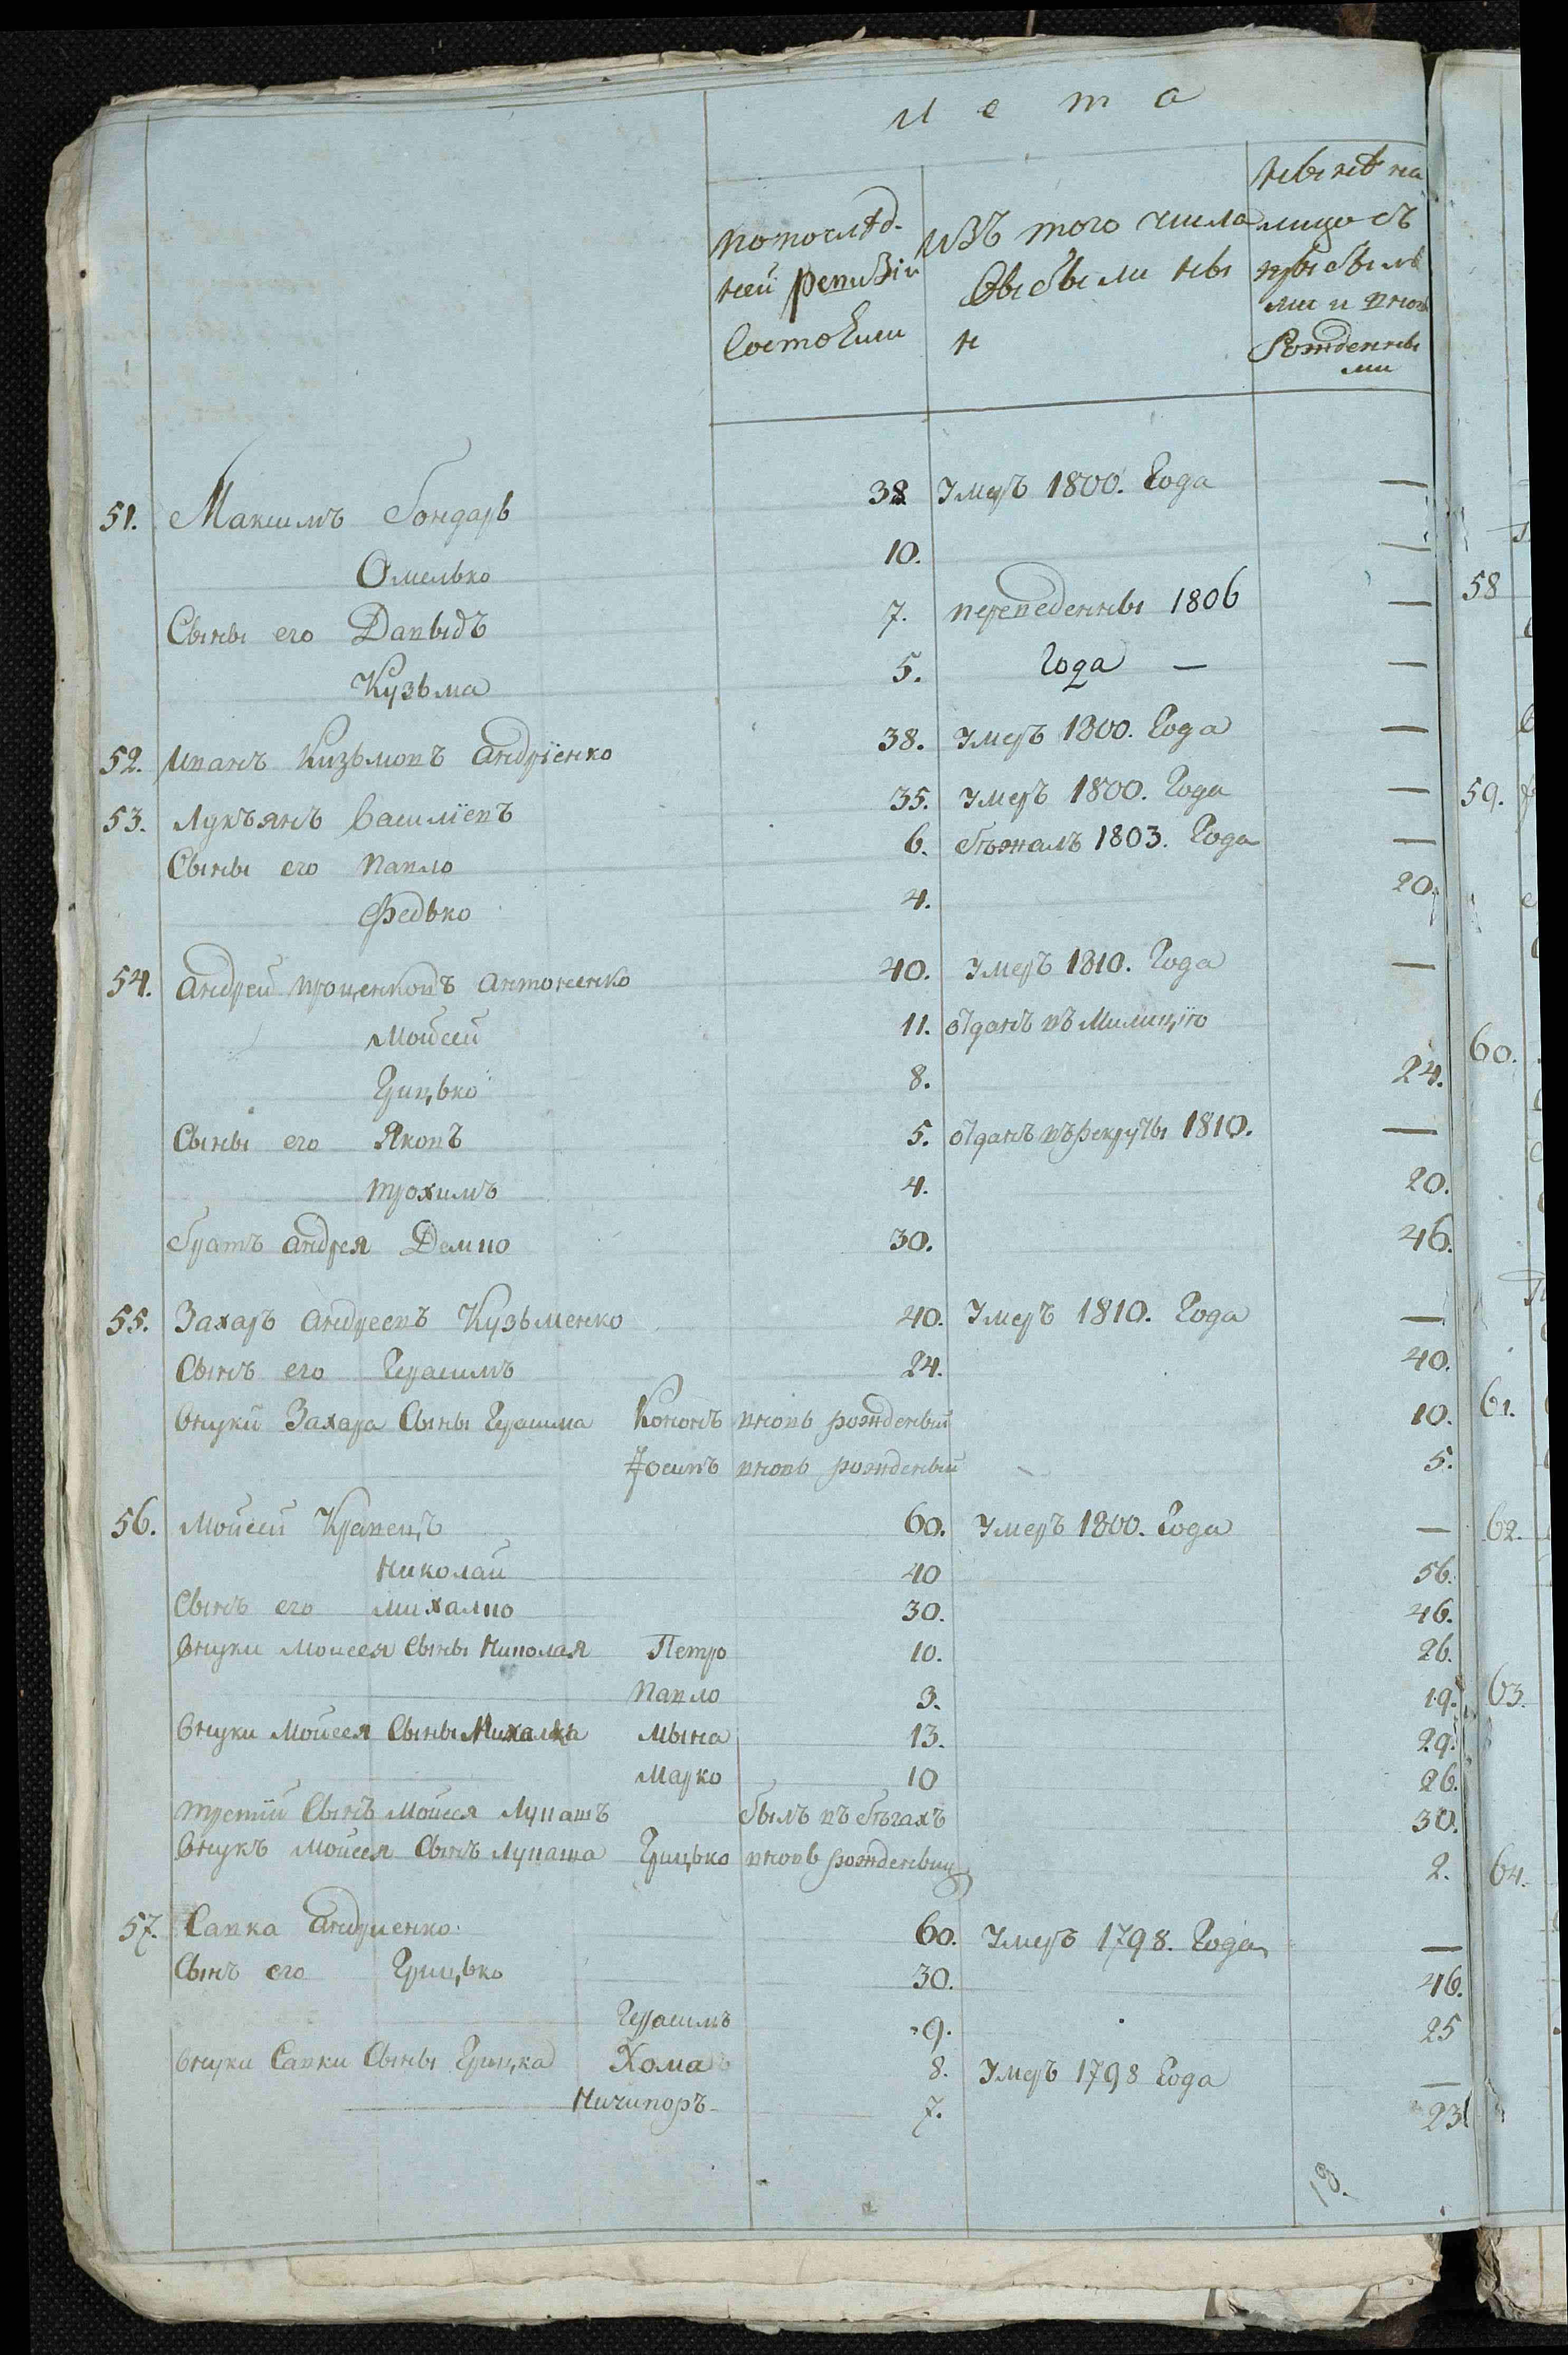 лета
попослѣд-
ней ревизіи
состояли
изъ того числа
выбыли ны
н
нынѣ на
лицо съ
прибылы
ми и внов
рожденны
ми
51. Максимъ Бондарь 38 умеръ 1800. Года —
Омелько 10. —
Сыны его Давыдъ 7. переведенны 1806 —
Кузьма 5. Года — —
52. Иванъ Кузьмовъ Андріенко 38. умеръ 1800. Года —
53. Лукъянъ Василіевъ 35. умеръ 1800. Года —
Сыны его Павло 6. бѣжалъ 1803. Года —
Федько 4. 20.
54. Андрей Проценковъ Антоненко 40. умеръ 1810. Года —
Мойсей 11. отданъ въ Милицію
Грицько 8. 24.
Сыны его Яковъ 5. отданъ въ рекруты 1810. —
Трохимъ 4. 20.
братъ Андрея Демко 30. 46.
55. Захаръ Андреевъ Кузьменко 40. умеръ 1810. Года —
Сынъ его Герасимъ 24. 40.
Внуки Захара Сыны Герасима Кононъ вновь рожденый 10.
Іосипъ вновь рожденый 5.
56. Мойсей Кравецъ 60. умеръ 1800. Года —
Николай 40 56.
Сынъ его Михалко 30. 46.
Внуки Моисея Сыны Николая Петро 10. 26.
Павло 3. 19.
Внуки Мойсея Сыны Михалка Мына 13. 29.
Марко 10 26.
третій Сынъ Мойсея Лукашъ былъ въ бѣгахъ 30.
Внукъ Мойсея Сынъ Лукаша Грицько вновь рожденный 2.
57. Савка Андриенко 60. умеръ 1798. Года —
Сынъ его Грицько 30. 46.
Герасимъ 9. 25
Внуки Савки Сыны Грицка Хома 8. умеръ 1798 Года —
Ничипоръ 7. 23
13.
58
59.
60.
61.
62.
63.
64.